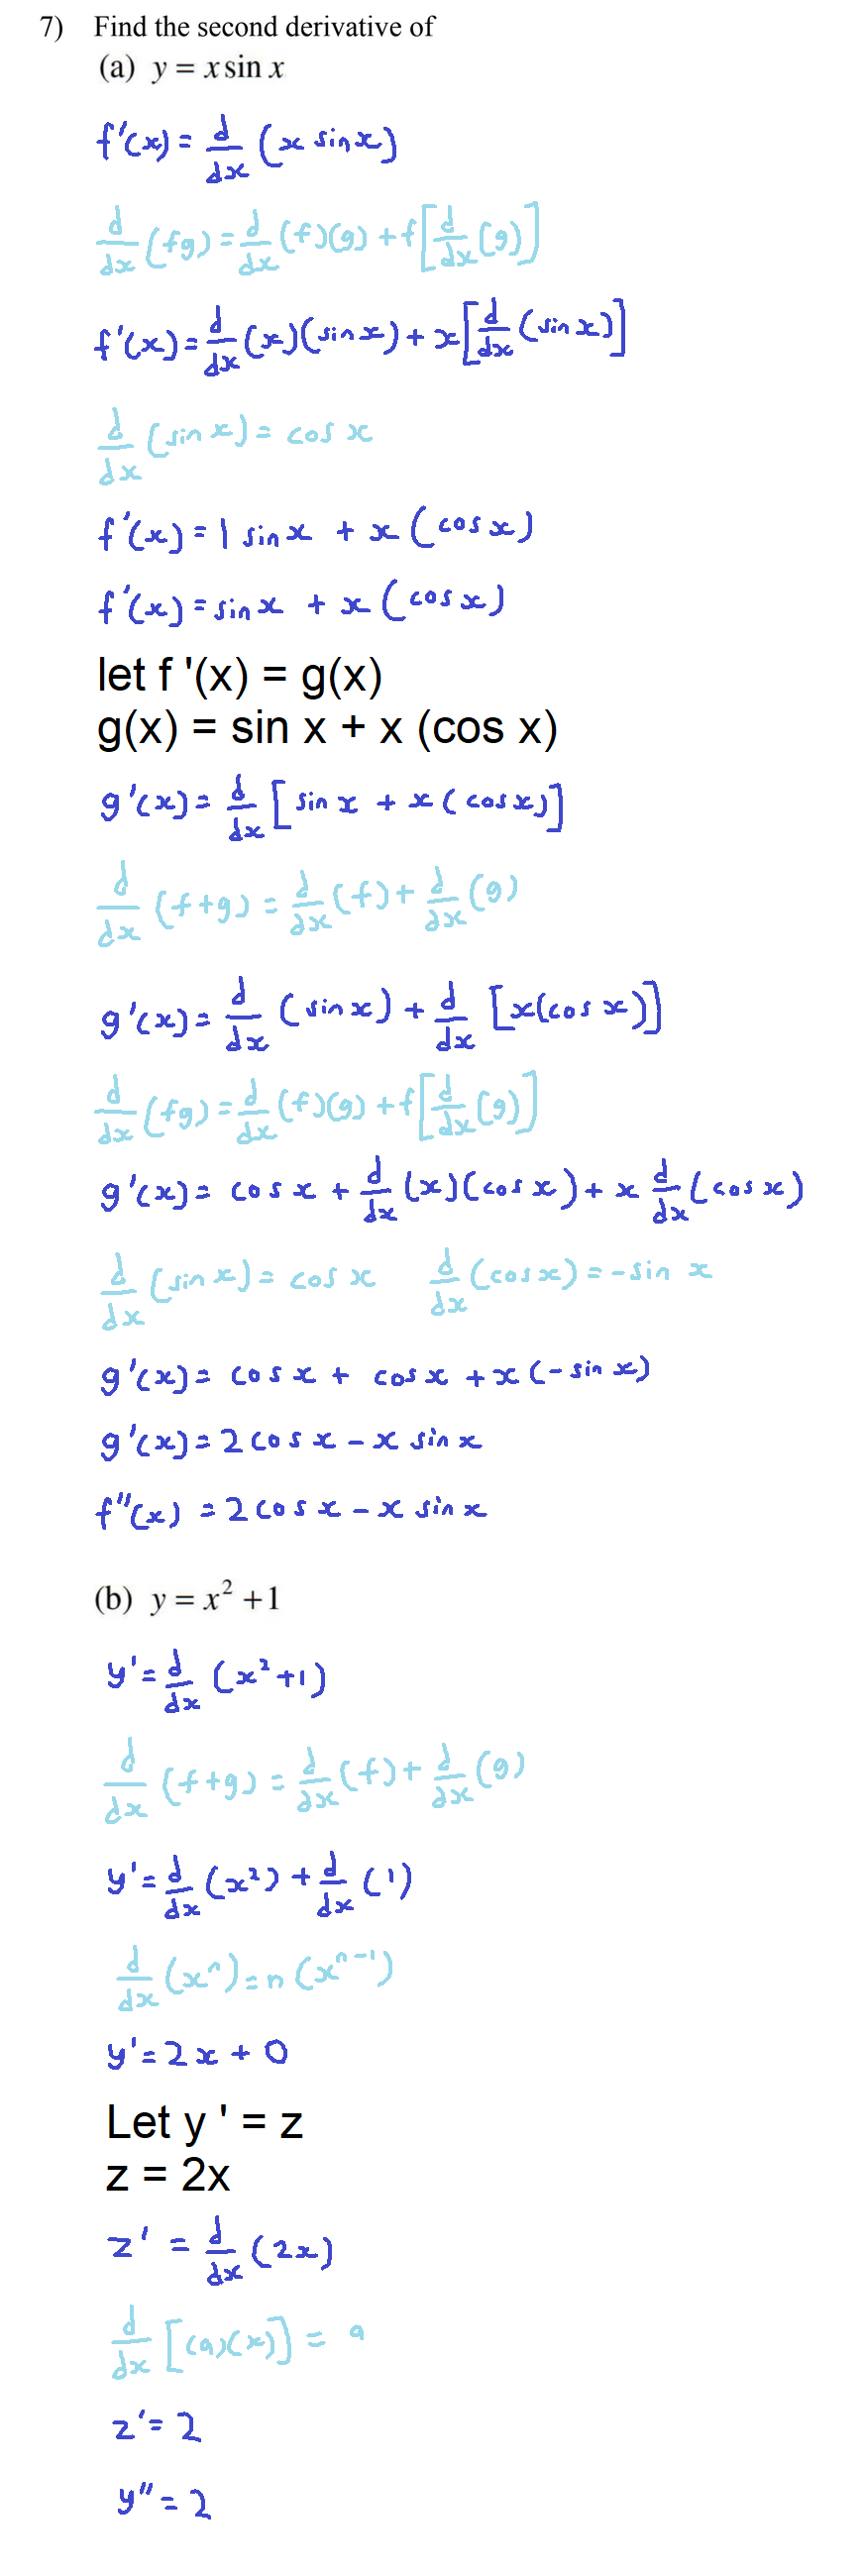 7) Find the second derivative of
(a) y = x sin x
f'(x) = d/dx (x sin x)
d/dx (fg) = d/dx (f)(g) + f[d/dx (g)]
f'(x) = d/dx (x)(sin x) + x[d/dx (sin x)]
d/dx (sin x) = cos x
f'(x) = 1 sin x + x (cos x)
f'(x) = sin x + x (cos x)
let f '(x) = g(x)
g(x) = sin x + x (cos x)
g'(x) = d/dx [sin x + x (cos x)]
d/dx (f+g) = d/dx (f) + d/dx (g)
g'(x) = d/dx (sin x) + d/dx [x(cos x)]
d/dx (fg) = d/dx (f)(g) + f[d/dx (g)]
g'(x) = cos x + d/dx (x)(cos x) + x d/dx (cos x)
d/dx (sin x) = cos x d/dx (cos x) = -sin x
g'(x) = cos x + cos x + x (-sin x)
g'(x) = 2 cos x - x sin x
f''(x) = 2 cos x - x sin x
(b) y = x² + 1
y' = d/dx (x² + 1)
d/dx (f+g) = d/dx (f) + d/dx (g)
y' = d/dx (x²) + d/dx (1)
d/dx (xⁿ) = n (xⁿ⁻¹)
y' = 2x + 0
Let y ' = z
z = 2x
z' = d/dx (2x)
d/dx [(a)(x)] = a
z' = 2
y'' = 2